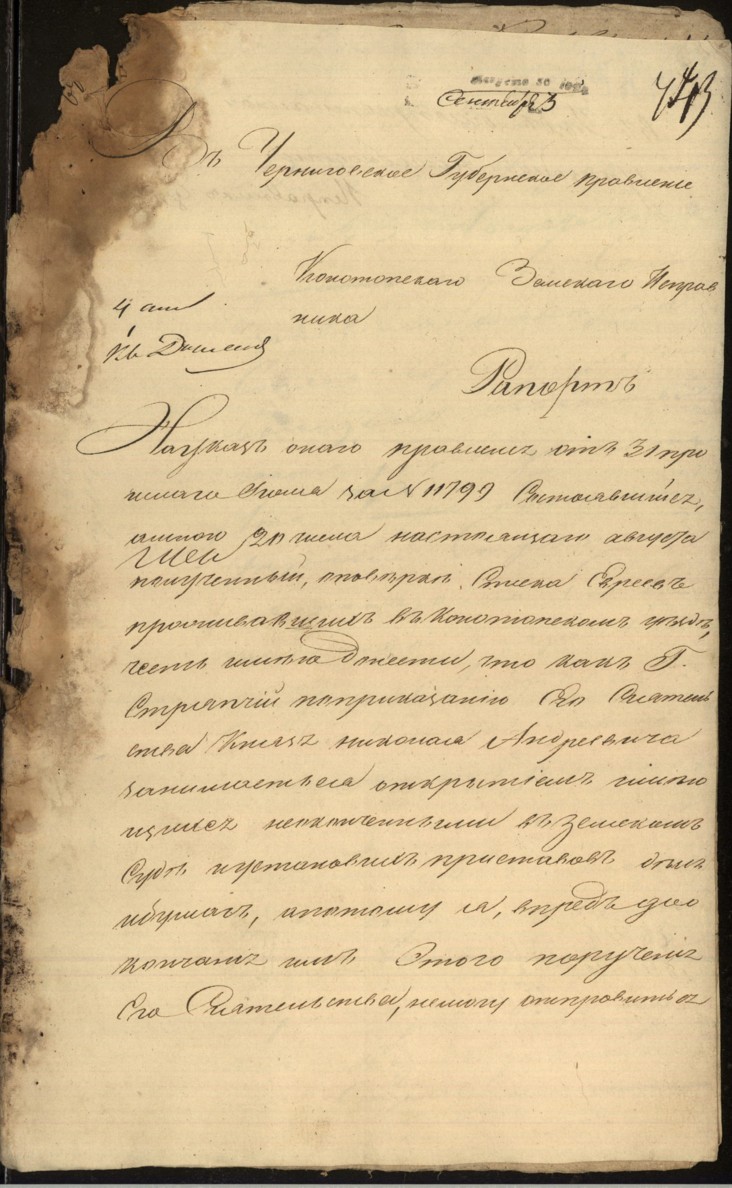 Сентября 3
443
Въ Черниговское Губернское правление
Конотопскаго Земскаго Исправ
ника
4 ст
Рапортъ
На указъ онаго правления отъ 31 про
шлаго Июля за № 11799 состоявшийся,
а мною 20 числа настоящаго августа
полученный, о поверке списка Евреевъ
проживавшихъ въ Конотопском уѣздѣ,
честь имѣю донести, что какъ Г.
Стряпчий по приказанию Его Сиятель
ства Князя Николая Андреевича
занимается открытиемъ
неоконченными въ Земскомъ
Суде и у становыхъ приставовъ делъ
и бумагъ, а потому я, впредь до о
кончания имъ этого поручения
Его Сиятельства, не могу отправиться